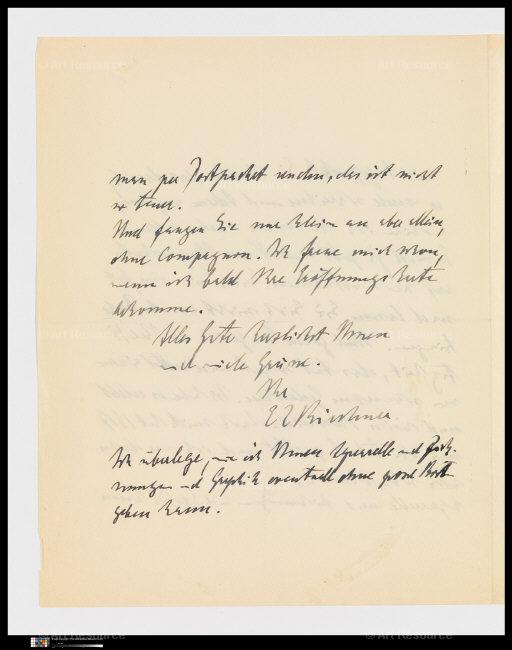 man per Postpacket senden, das ist nicht
so teuer.
Und fangen Sie nur klein an aber allein,
ohne Compagnon. Ich freue mich schon,
wenn ich bald Ihre Eröffnungskarte
bekomme.
Alles Gute herzlichst Ihnen
und viele Grüsse.
Ihr
E L Kirchner
Ich überlege, wie ich Ihnen Aquarelle und Zeich-
nungen und Graphik eventuell ohne grosse Kosten
geben kann.
© Art Resource
© Art Resource
© Art Resource
© Art Resource